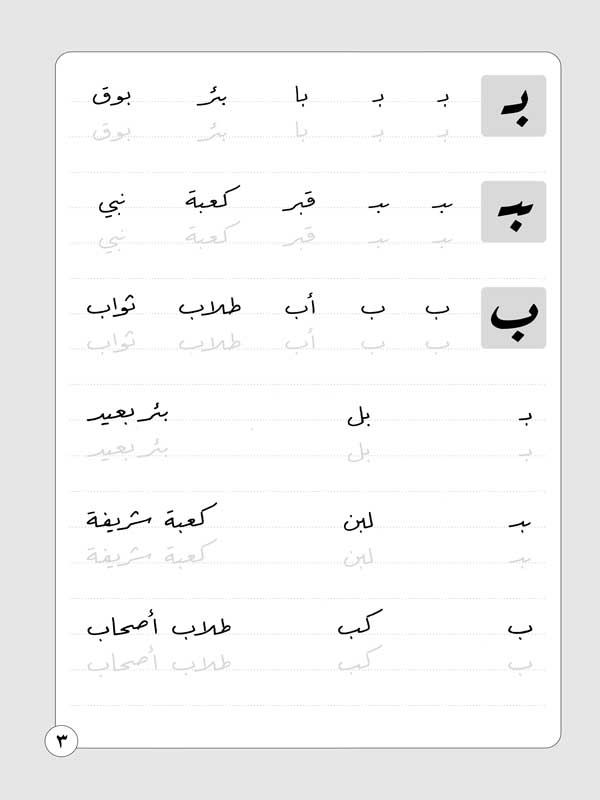 بـ بـ بـ با بئر بوق
بـ بـ با بئر بوق
ـبـ ـبـ ـبـ قبر كعبة نبي
ـبـ ـبـ قبر كعبة نبي
ب ب ب أب طلاب ثواب
ب ب أب طلاب ثواب
بـ بل بئر بعيد
بـ بل بئر بعيد
ـبـ لبن كعبة شريفة
ـبـ لبن كعبة شريفة
ب كب طلاب أصحاب
ب كب طلاب أصحاب
٣